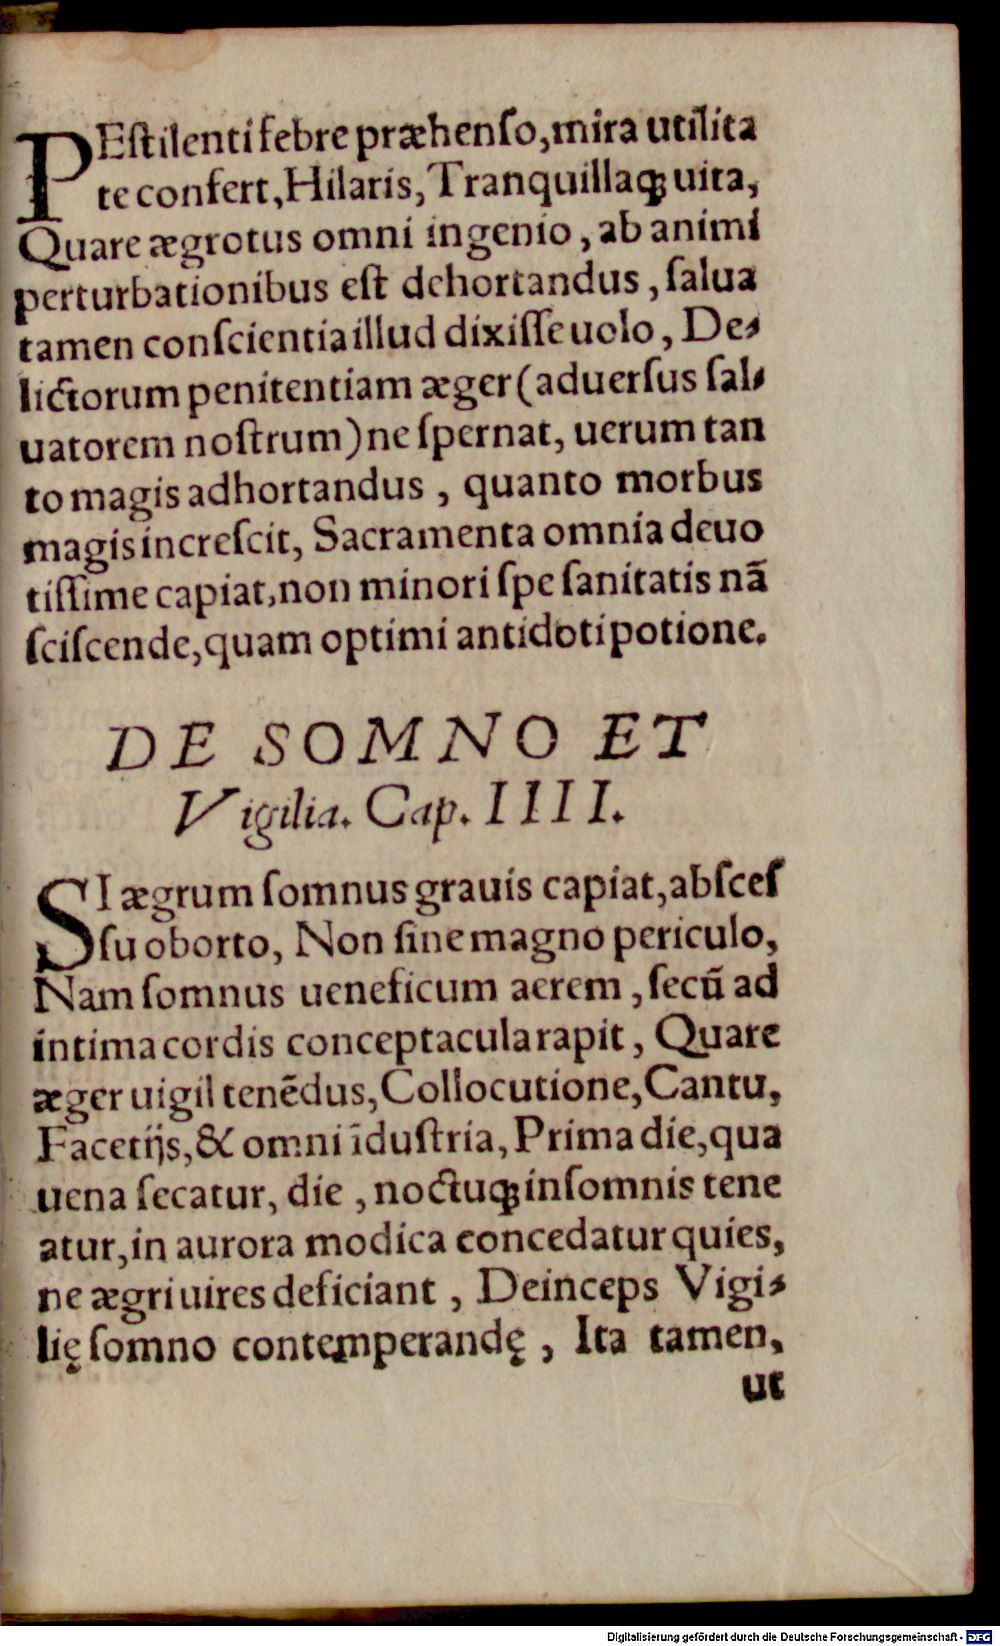 PEſtilenti febre præhenſo, mira utilita
te confert, Hilaris, Tranquillaqꝫ uita,
Quare ægrotus omni ingenio, ab animi
perturbationibus eſt dehortandus, ſalua
tamen conſcientia illud dixiſſe uolo, De⸗
lictorum penitentiam æger (aduerſus ſal⸗
uatorem noſtrum) ne ſpernat, uerum tan
to magis adhortandus, quanto morbus
magis increſcit, Sacramenta omnia deuo
tiſſime capiat, non minori ſpe ſanitatis nã
ſciſcende, quam optimi antidoti potione.
DE SOMNO ET
Vigilia. Cap. IIII.
SI ægrum ſomnus grauis capiat, abſceſ
ſu oborto, Non ſine magno periculo,
Nam ſomnus ueneficum aerem, ſecũ ad
intima cordis conceptacula rapit, Quare
æger uigil tenẽdus, Collocutione, Cantu,
Facetijs, & omni ĩduſtria, Prima die, qua
uena ſecatur, die, noctuqꝫ inſomnis tene
atur, in aurora modica concedatur quies,
ne ægri uires deficiant, Deinceps Vigi⸗
lię ſomno contemperandę, Ita tamen,
ut
Digitalisierung gefördert durch die Deutsche Forschungsgemeinschaft - DFG